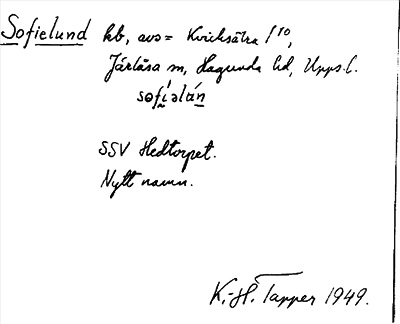 Sofielund hb, avs = Kvicksätra 1/10,
Järlåsa sn, Hagunda hd, Upps. l.
sofiəlún
SSV Hedtorpet.
Nytt namn.
K.-H. Tapper 1949.